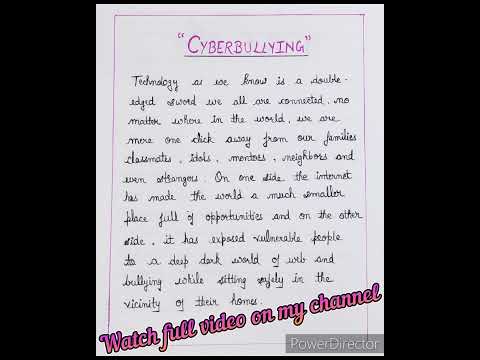 "CYBERBULLYING"
Technology as we know is a double-
edged sword we all are connected, no
matter where in the world, we are
mere one click away from our families
classmates, idols, mentors, neighbors and
even strangers. On one side the internet
has made the world a much smaller
place full of opportunities and on the other
side, it has exposed vulnerable people
to a deep dark world of web and
bullying while sitting safely in the
vicinity of their homes.
Watch full video on my channel
PowerDirector